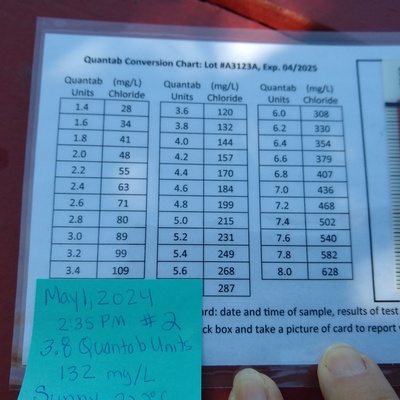 Quantab Conversion Chart: Lot #A3123A, Exp. 04/2025
Quantab Units (mg/L) Chloride Quantab Units (mg/L) Chloride Quantab Units (mg/L) Chloride
1.4 28 3.6 120 6.0 308
1.6 34 3.8 132 6.2 330
1.8 41 4.0 144 6.4 354
2.0 48 4.2 157 6.6 379
2.2 55 4.4 170 6.8 407
2.4 63 4.6 184 7.0 436
2.6 71 4.8 199 7.2 468
2.8 80 5.0 215 7.4 502
3.0 89 5.2 231 7.6 540
3.2 99 5.4 249 7.8 582
3.4 109 5.6 268 8.0 628
287
ard: date and time of sample, results of test
ck box and take a picture of card to report
May 1, 2024
2:35 PM #2
3.8 Quantab Units
132 mg/L
Sunny